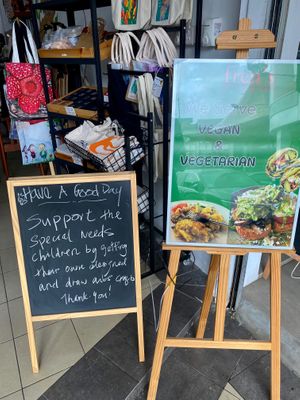 Have A Good Day
Support the
special needs
children by getting
their own designed
and draw arts crafts
Thank you!
We Serve
VEGAN
&
VEGETARIAN